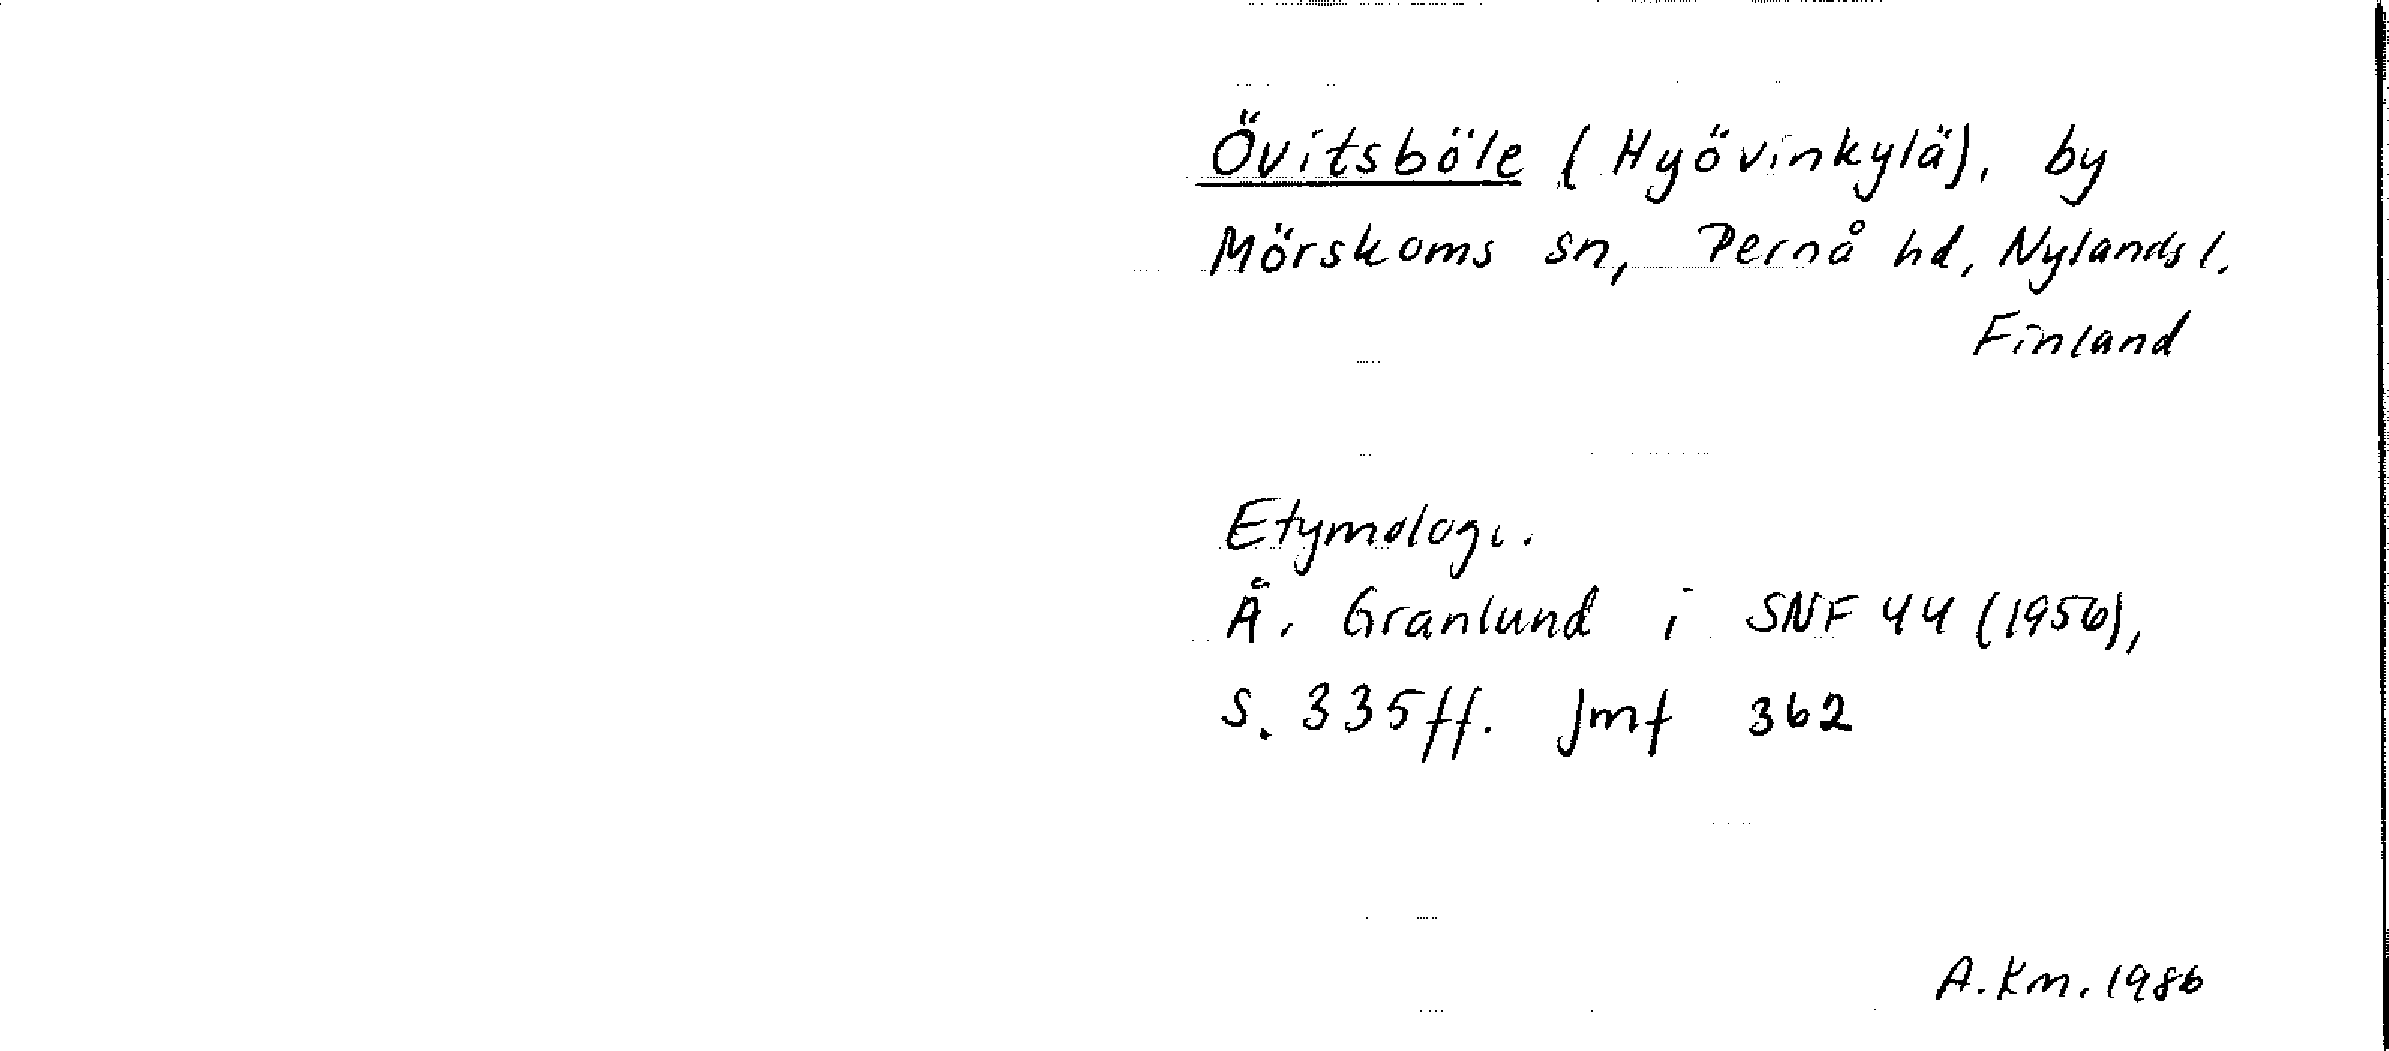 Övitsböle (Hyövinkylä), by
Mörskoms sn, Pernå hd, Nylands l.
Finland
Etymologi.
Å. Granlund i SNF 44 (1956),
s. 335ff. Jmf 362
A. Km. 1986